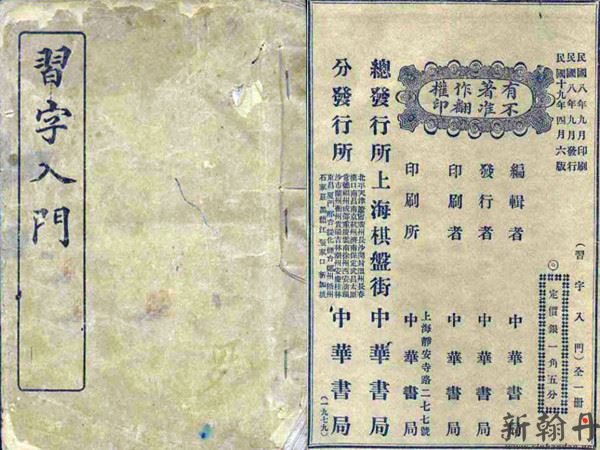 習字入門
民國八年九月印刷
民國八年九月發行
民國十九年四月六版
(習字入門)全一冊
◎定價銀一角五分
編輯者 中華書局
發行者 中華書局
印刷者 中華書局
印刷所 上海靜安寺路二七七號 中華書局
有著作權
不准翻印
總發行所 上海棋盤街 中華書局
分發行所 中華書局
(一九七九)
新翰丹